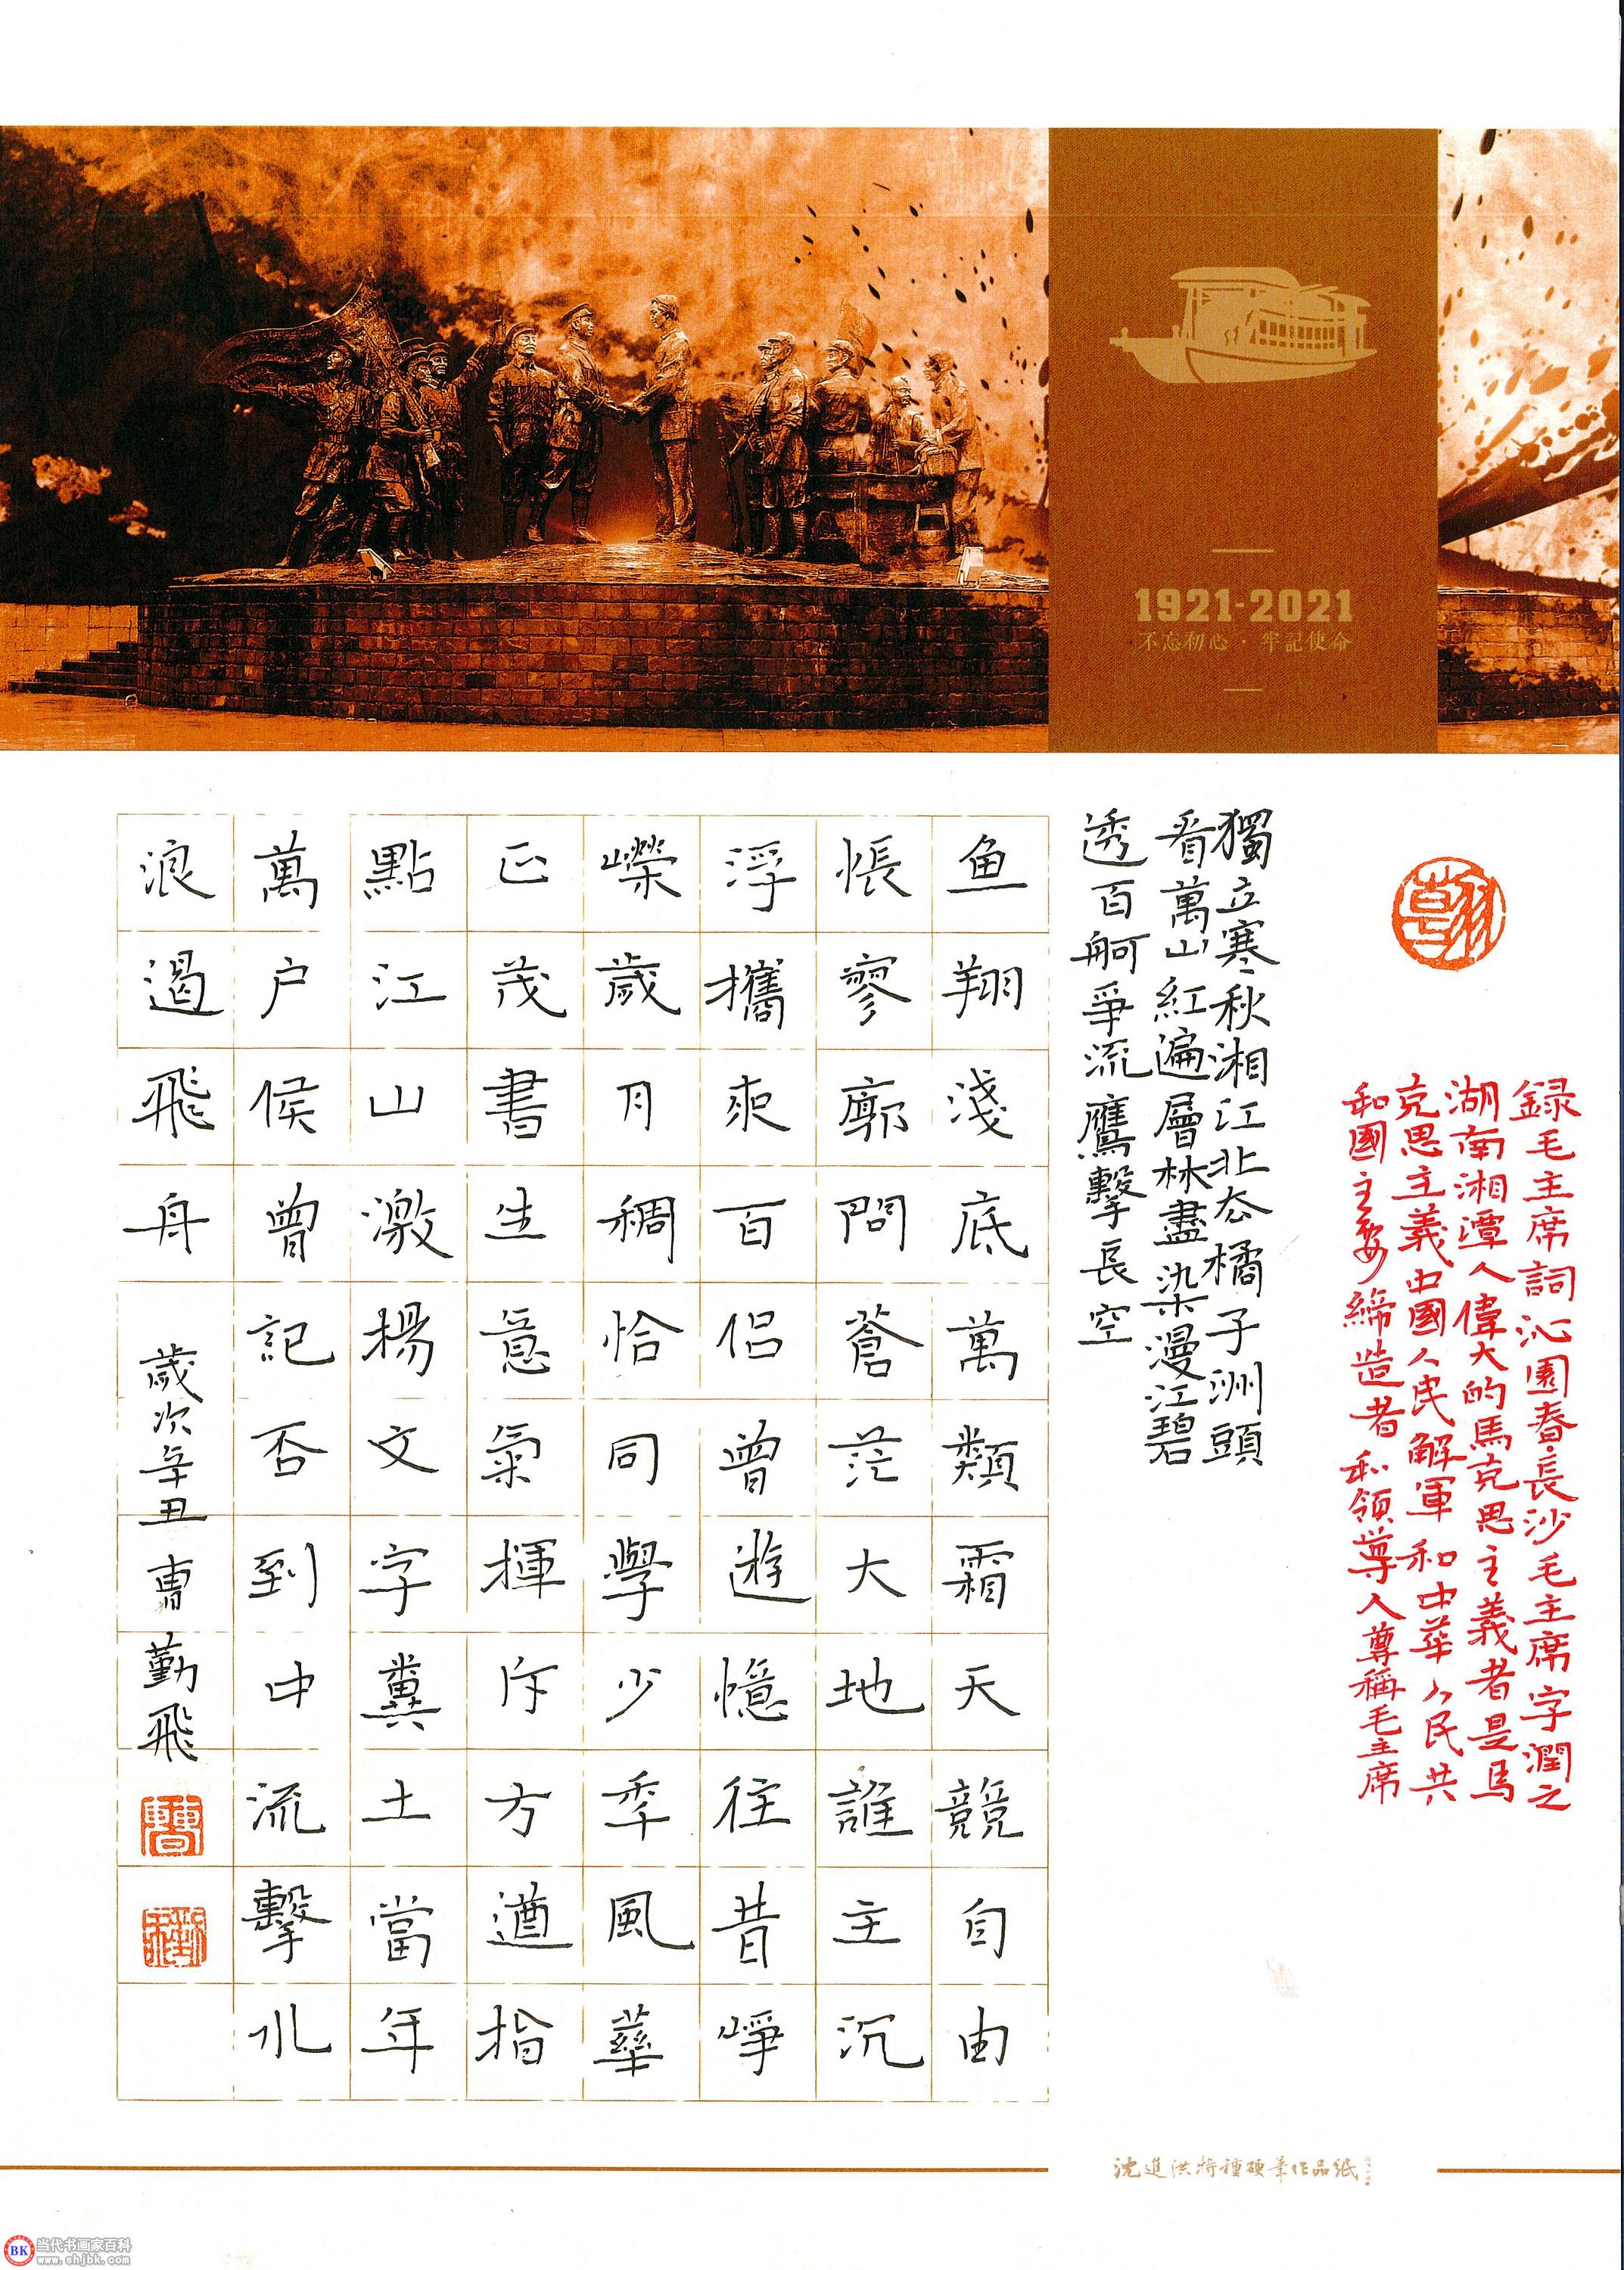 1921-2021
不忘初心·牢記使命
録毛主席詞沁園春長沙毛主席字潤之
湖南湘潭人偉大的馬克思主義者是馬
克思主義中國人民解軍和中華人民共
和國主要締造者和領導人尊稱毛主席
獨立寒秋湘江北去橘子洲頭
看萬山紅遍層林盡染漫江碧
透百舸爭流鷹擊長空
鱼翔淺底萬類霜天競自由
悵寥廓問蒼茫大地誰主沉
浮攜來百侣曾遊憶往昔崢
嶸歲月稠恰同學少季風華
正茂書生意氣揮斥方遒指
點江山激揚文字糞土當年
萬户侯曾記否到中流擊水
浪遏飛舟
歲次辛丑曹勤飛
曹
沈進洪特種硬筆作品紙
BK
当代书画家百科
www.shjbk.com